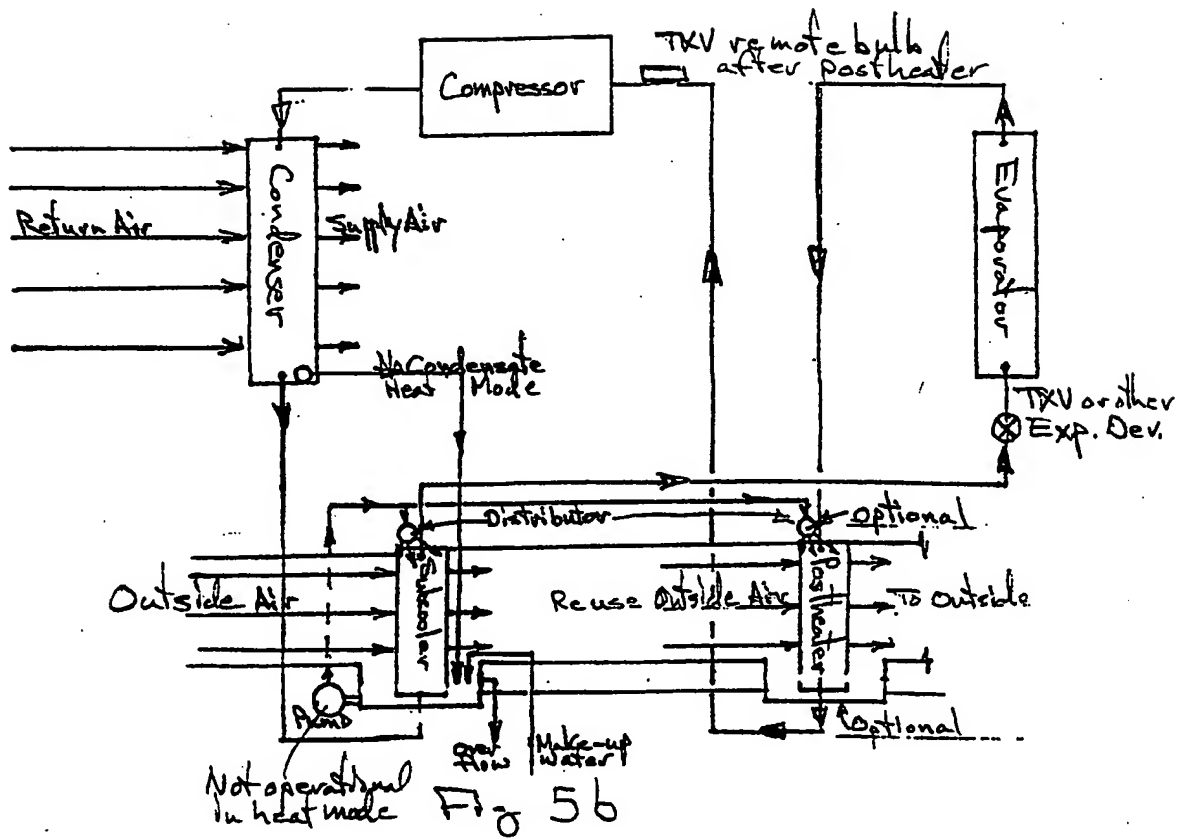 TXV remote bulb
after postheater
Compressor
Condenser
Return Air
Supply Air
Evaporator
No Condensate
Heat Mode
TXV or other
Exp. Dev.
Distributor
Optional
Outside Air
Subcooler
Reuse Outside Air
Postheater
To Outside
Pump
Over
flow
Make-up
Water
Optional
Not operational
In heat mode
Fig 5b